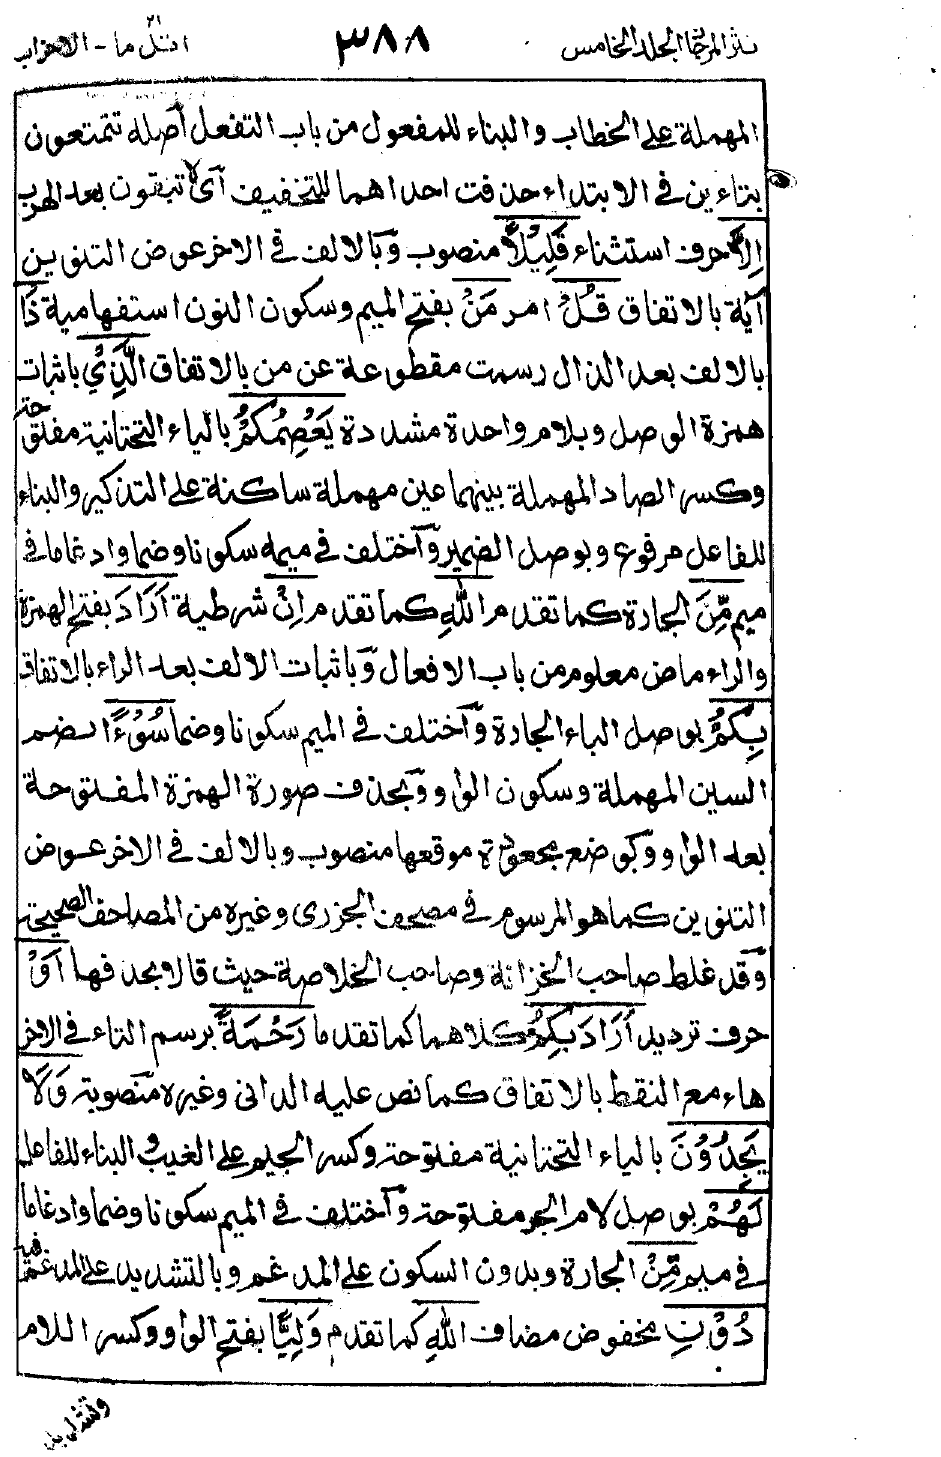 نثر المرجان الجلد الخامس ٣٨٨ اتل ما - الاحزاب ٢١
المهملة على الخطاب والبناء للمفعول من باب التفعل أصله تتمتعون
بتاءين في الابتداء حذفت احداهما للتخفيف آي لا تبقون بعد الهرب
إِلَّا حرف استثناء قَلِيْلًا منصوب وَبالالف في الاخر عوض التنوين
آية بالاتفاق قُلْ امر مَنْ بفتح الميم وسكون النون استفهامية ذَا
بالالف بعد الذال رسمت مقطوعة عن من بالاتفاق الَّذِيْ باثبات
همزة الوصل وبلام واحدة مشددة يَعْصِمُكُمْ بالياء التحتانية مفتوحة
وكسر الصاد المهملة بينهما عين مهملة ساكنة على التذكير والبناء
للفاعل مرفوع وبوصل الضمير وَآختلف في ميمه سكونا وضما وادغاما في
ميم مِّنَ الجارة كما تقدم اللهِ كما تقدم اِنْ شرطية اَرَادَ بفتح الهمزة
والراء ماض معلوم من باب الافعال وَباثبات الالف بعد الراء بالاتفاق
بِكُمْ بوصل الباء الجارة وَآختلف في الميم سكونا وضما سُوْءًا بضم
السين المهملة وسكون الواو وَبحذف صورة الهمزة المفتوحة
بعد الواو وَبوضع مجعودة موقعها منصوب وبالالف في الاخر عوض
التنوين كما هو المرسوم في مصحف الجزرى وغيره من المصاحف الصحيحة
وَقد غلط صاحب الخزانة وصاحب الخلاصة حيث قالا بحذفها اَوْ
حرف ترديد اَرَادَ بِكُمْ كلاهما كما تقدما رَحْمَةً برسم التاء في الاخر
هاء مع النقط بالاتفاق كما نص عليه الدانى وغيره منصوبة وَلَا
يَجِدُوْنَ بالياء التحتانية مفتوحة وكسر الجيم على الغيب والبناء للفاعل
لَهُمْ بوصل لام الجر مفتوحة وَآختلف في الميم سكونا وضما وادغاما
في ميم مِّنْ الجارة وبدون السكون على المدغم وبالتشديد على المدغم فيه
دُوْنِ مخفوض مضاف اللهِ كما تقدم وَلِيًّا بفتح الواو وكسر اللام